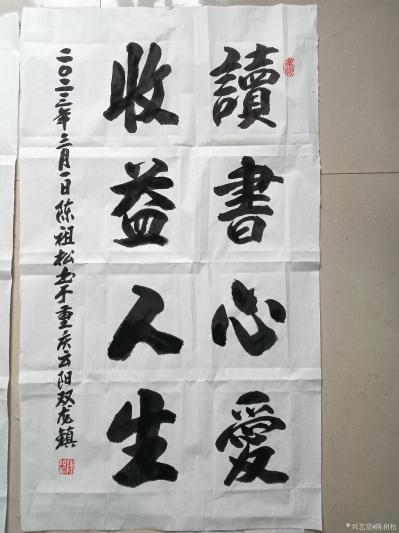 讀書心愛
收益人生
二〇二三年三月一日陈祖松书于重庆云阳双龙镇
兴艺堂@陈祖松